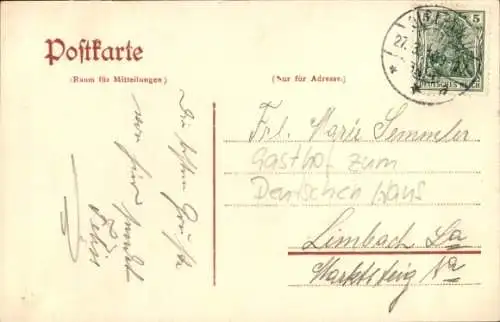 Postkarte
(Raum für Mitteilungen)
(Nur für Adresse.)
5
DEUTSCHES REICH
27.
Die besten Grüße
von hier sendet
Frl. Marie Semmler
Gasthof zum
Deutschen Haus
Limbach Sa
Marktsteig